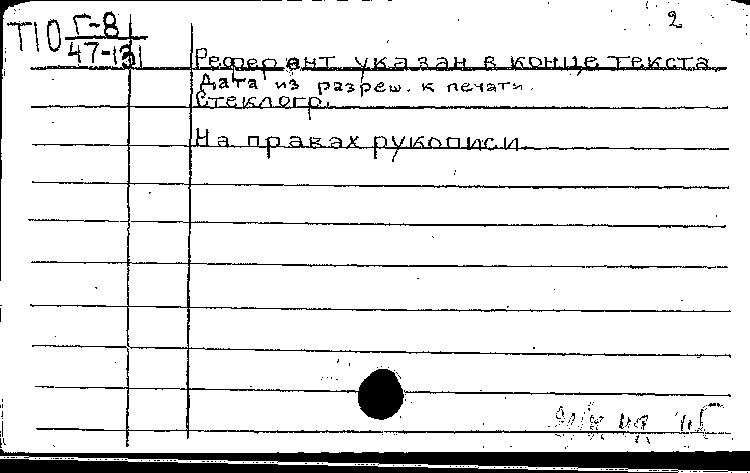 2
Т10 Г-8
47-131
Референт указан в конце текста.
Дата из разреш. к печати.
Стеклогр.
На правах рукописи.